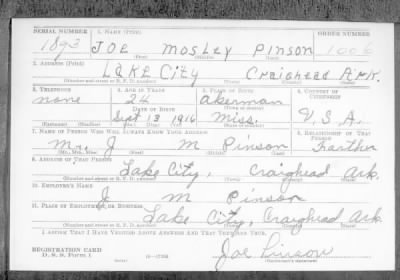 SERIAL NUMBER 1. NAME (Print) ORDER NUMBER
1893 Joe Mosley Pinson 1006
(First) (Middle) (Last)
2. ADDRESS (Print)
Lake City Craighead Ark.
(Number and street or R. F. D. number) (Town) (County) (State)
3. TELEPHONE 4. AGE IN YEARS 5. PLACE OF BIRTH 6. COUNTRY OF CITIZENSHIP
none 24 Akerman
DATE OF BIRTH (Town or county)
Sept 13 1916 Miss. U.S.A.
(Exchange) (Number) (Mo.) (Day) (Yr.) (State or country)
7. NAME OF PERSON WHO WILL ALWAYS KNOW YOUR ADDRESS 8. RELATIONSHIP OF THAT PERSON
Mr. J M Pinson Farther
(Mr., Mrs., Miss) (First) (Middle) (Last)
9. ADDRESS OF THAT PERSON
Lake City, Craighead Ark.
(Number and street or R. F. D. number) (Town) (County) (State)
10. EMPLOYER'S NAME
J M Pinson
11. PLACE OF EMPLOYMENT OR BUSINESS
Lake City, Craighead Ark.
(Number and street or R. F. D. number) (Town) (County) (State)
I AFFIRM THAT I HAVE VERIFIED ABOVE ANSWERS AND THAT THEY ARE TRUE.
REGISTRATION CARD
D. S. S. Form 1 Joe Pinson